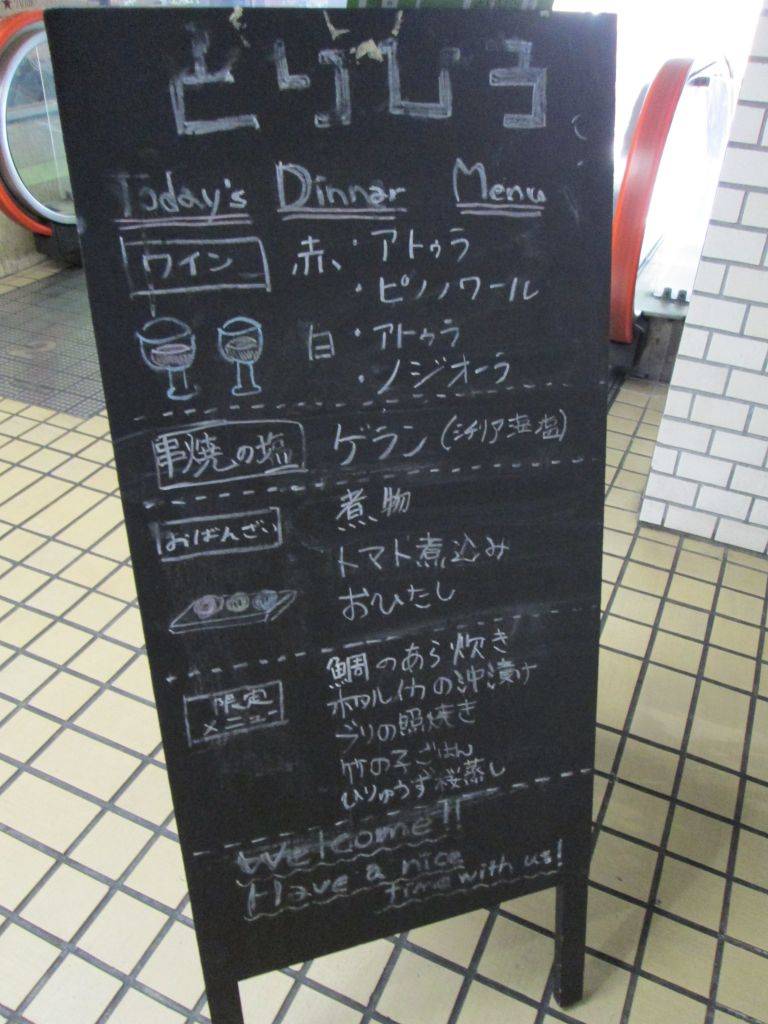 とりひろ
Today's Dinnar Menu
ワイン 赤、・アトゥラ
・ピノノワール
白・アトゥラ
・ノジオーラ
串焼の塩 ゲラン(シチリア海塩)
おばんざい 煮物
トマト煮込み
おひたし
限定メニュー 鯛のあら炊き
ホタルイカの沖漬け
ブリの照焼き
竹の子ごはん
ひりゅうず桜蒸し
Welcome!!
Have a nice
time with us!